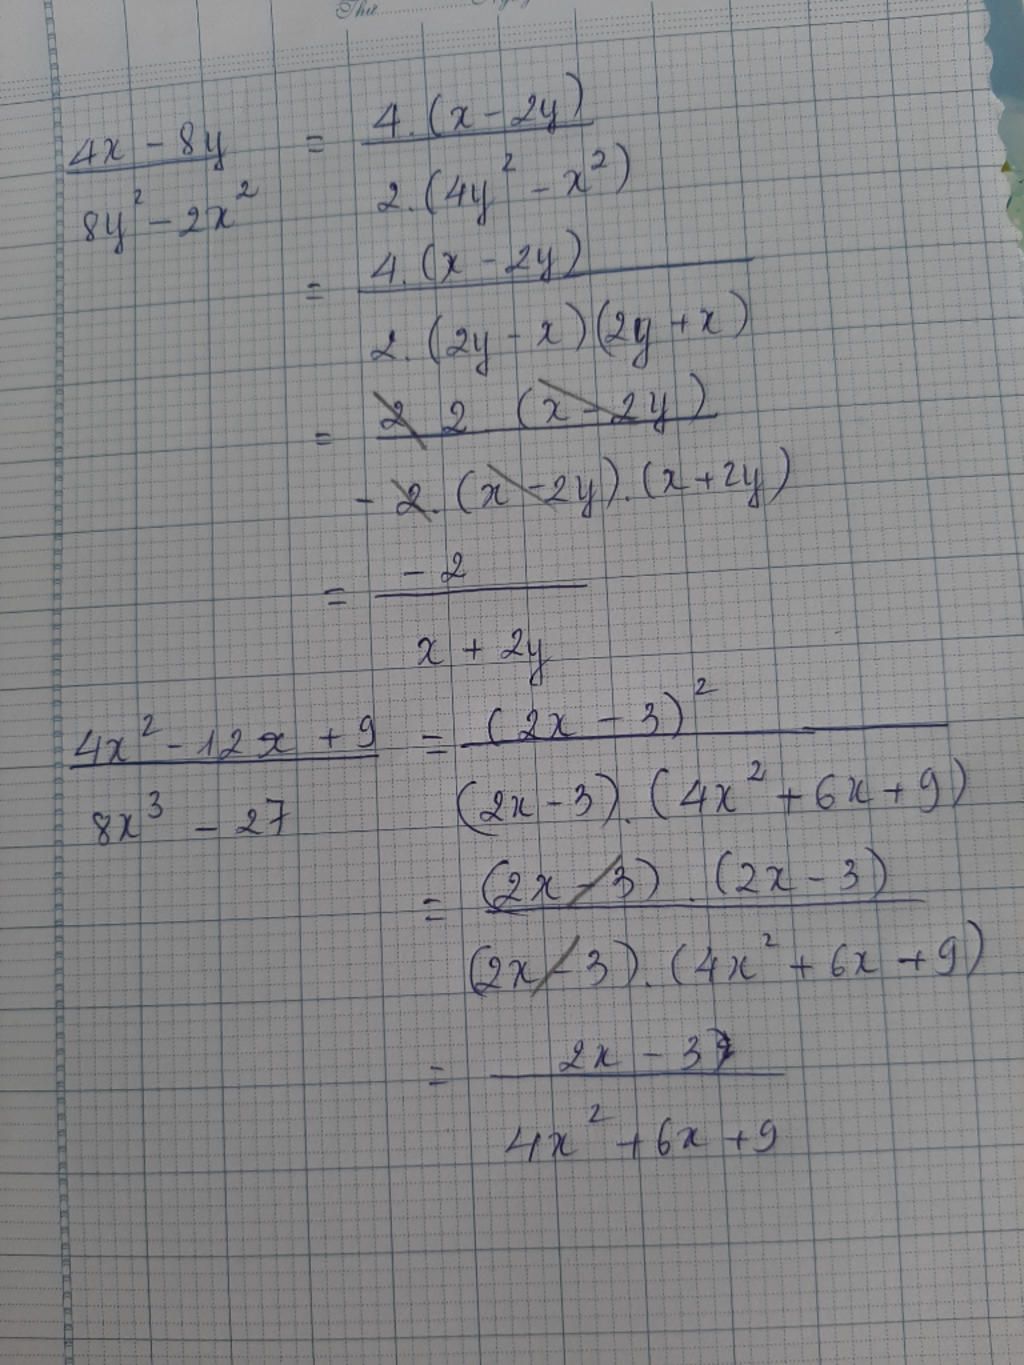 Thứ
4x - 8y / 8y² - 2x² = 4.(x - 2y) / 2.(4y² - x²)
= 4.(x - 2y) / 2.(2y - x)(2y + x)
= 2 2 (x - 2y) / - 2.(x - 2y).(x + 2y)
= - 2 / x + 2y
4x² - 12x + 9 / 8x³ - 27 = (2x - 3)² / (2x - 3).(4x² + 6x + 9)
= (2x - 3).(2x - 3) / (2x - 3).(4x² + 6x + 9)
= 2x - 3 / 4x² + 6x + 9